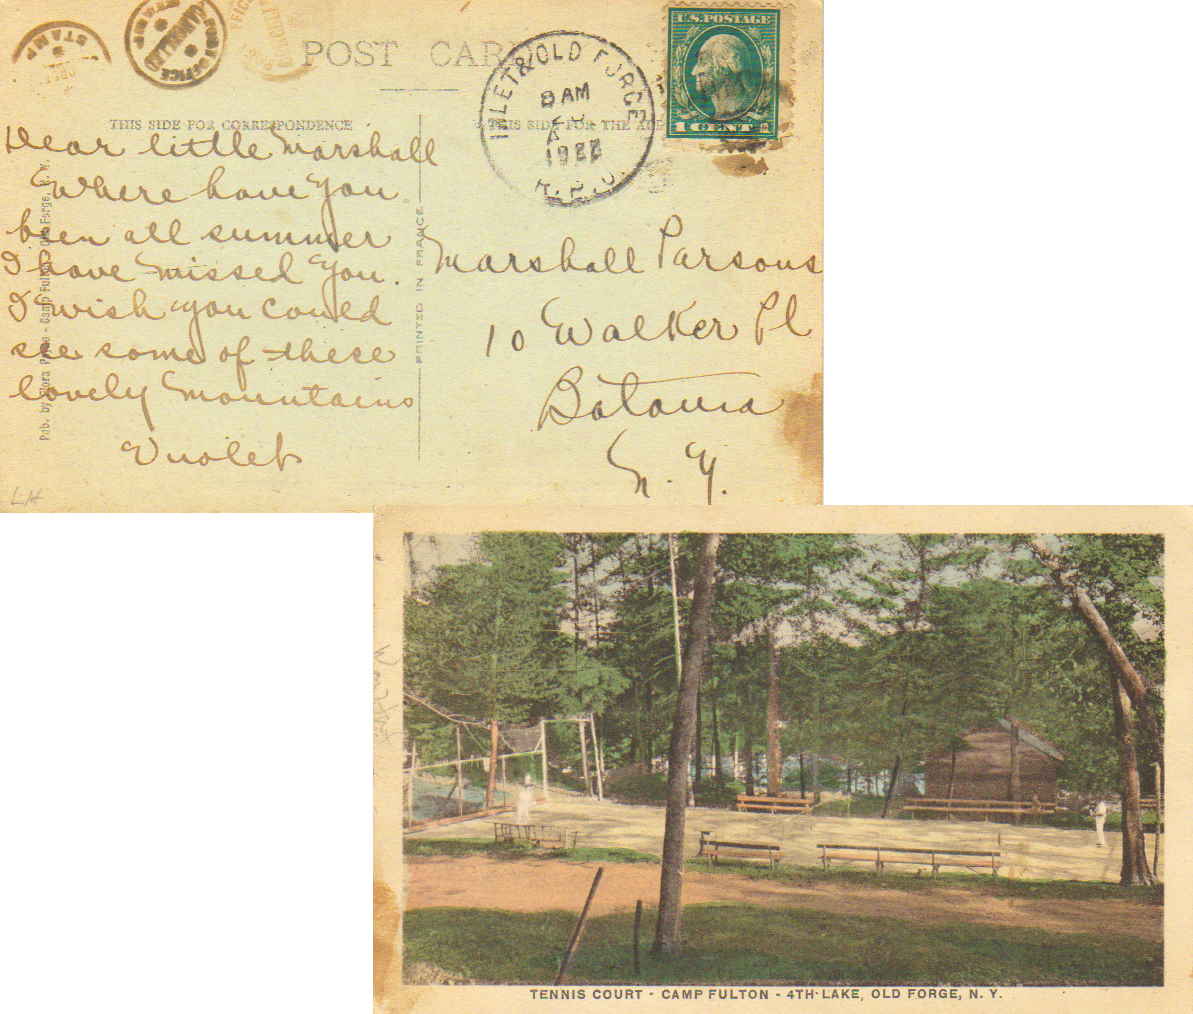 POST CARD
THIS SIDE FOR CORRESPONDENCE
THIS SIDE FOR THE
Dear little Marshall
Where have you
been all summer
I have missed you.
I wish you could
see some of these
lovely Mountains
Violet
LH
PRINTED IN FRANCE
INLET & OLD FORGE
8 AM
R.P.O.
U.S. POSTAGE
1 CENT
Marshall Parsons
10 Walker Pl
Batavia
N.Y.
POST OFFICE
CANCELLED
STAMP
STAMP
TENNIS COURT - CAMP FULTON - 4TH LAKE, OLD FORGE, N. Y.